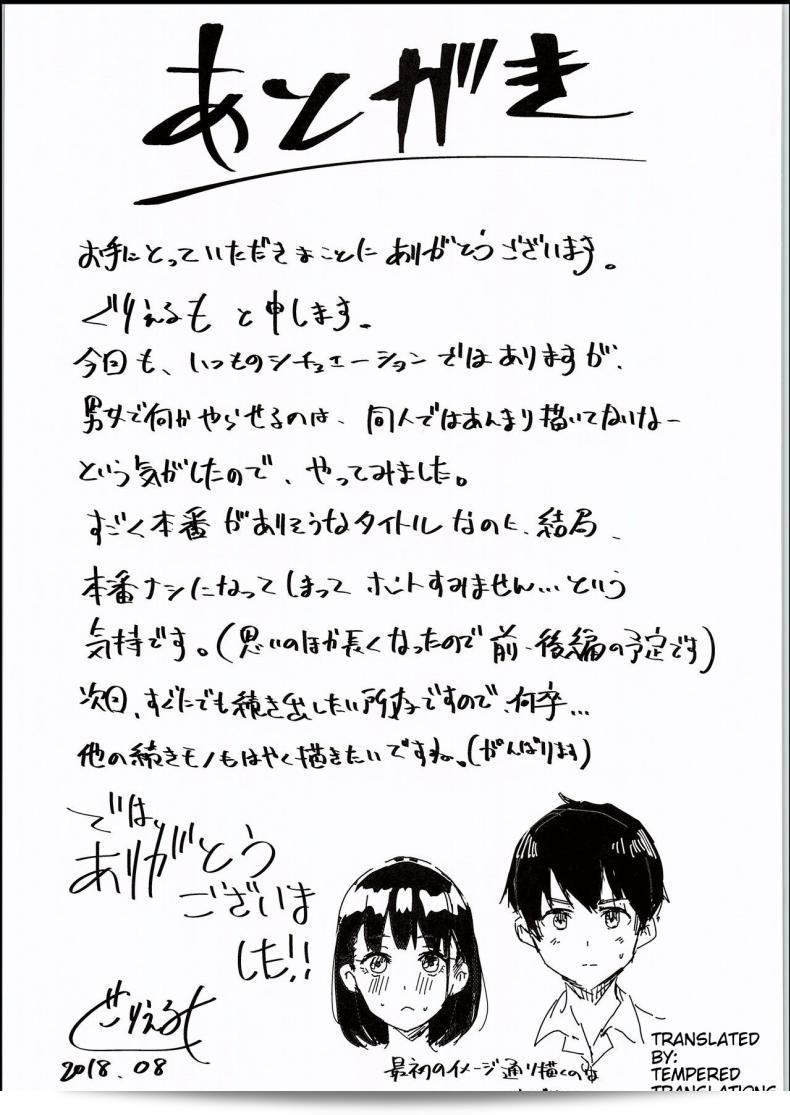 あとがき
お手にとっていただきまことにありがとうございます。
ぐりえるもと申します。
今回も、いつものシチュエーションではありますが、
男女で何かやらせるのは、同人ではあんまり描いてないなー
という気がしたので、やってみました。
すごく本番がありそうなタイトルなのに、結局、
本番ナシになってしまってホントすみません…という
気持です。(思いのほか長くなったので前・後編の予定です)
次回、すぐにでも続き出したい所存ですので、何卒…
他の続きモノもはやく描きたいですね。(がんばります)
では、
ありがとう
ございま
した!!
ぐりえるも
2018.08
最初のイメージ通り描くのは
TRANSLATED
BY:
TEMPERED
TRANSLATIONS